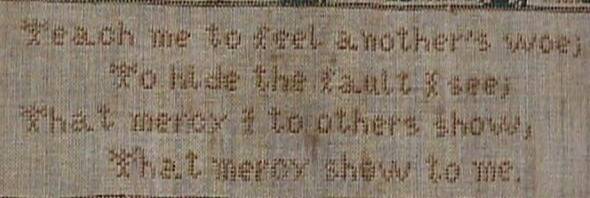 Teach me to feel another's woe;
To hide the fault I see;
That mercy I to others show,
That mercy show to me.